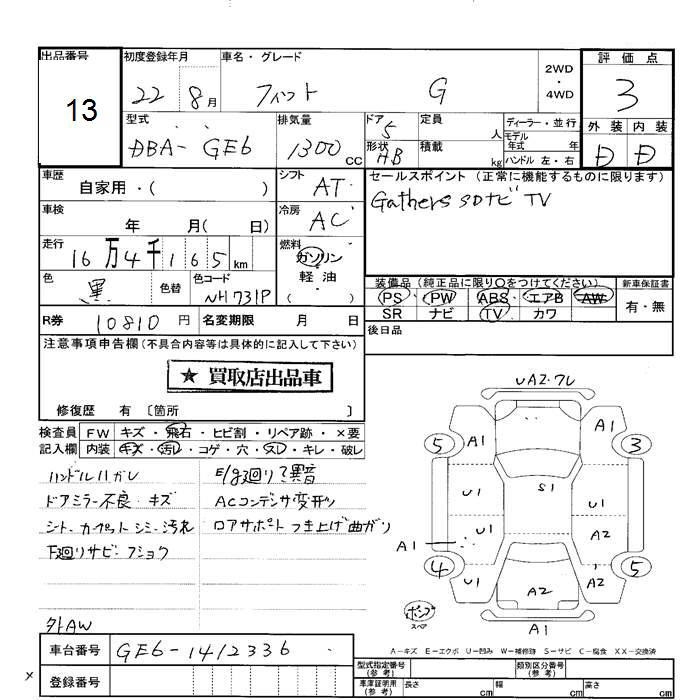 出品番号 初度登録年月 車名・グレード 評価点
13 22 8月 フィット G 2WD・4WD 3
型式 排気量 ドア 5 定員 人 ディーラー・並行 外装 内装
DBA- GE6 1300 cc 形状 HB 積載 kg モデル年式 年 ハンドル 左・右 D D
車歴 自家用・( ) シフト AT セールスポイント (正常に機能するものに限ります)
車検 年 月( 日) 冷房 AC Gathers SDナビ TV
走行 16万4千165km 燃料 ガソリン
色 黒 色替 色コード NH731P 軽油 ( )
装備品 (純正品に限り○をつけてください) 新車保証書
PS PW ABS エアB AW 有・無
SR ナビ TV カワ
R券 10810円 名変期限 月 日 後日品
注意事項申告欄(不具合内容等は具体的に記入して下さい)
★ 買取店出品車
修復歴 有 〔箇所 〕
検査員 FW キズ・飛石・ヒビ割・リペア跡・×要
記入欄 内装 キズ・汚レ・コゲ・穴・スレ・キレ・破レ
ハンドルハガレ E/g廻り異音
ドアミラー不良・キズ ACコンデンサ変形
シート カーペット シミ・汚れ ロアサポート つき上げ曲がり
下廻りサビ・フショク
外AW
UA2・フレ
A1 A1
5 3
U1 S1 U1
U1 A2
A1
4 5
U1 A2 A2
ポンプ
スペア
A1
A-キズ E-エクボ U-凹み W-補修跡 S-サビ C-腐食 XX-交換済
車台番号 GE6-1412336
登録番号
型式指定番号(参考) 類別区分番号(参考)
車庫証明用(参考) 長さ cm 幅 cm 高さ cm